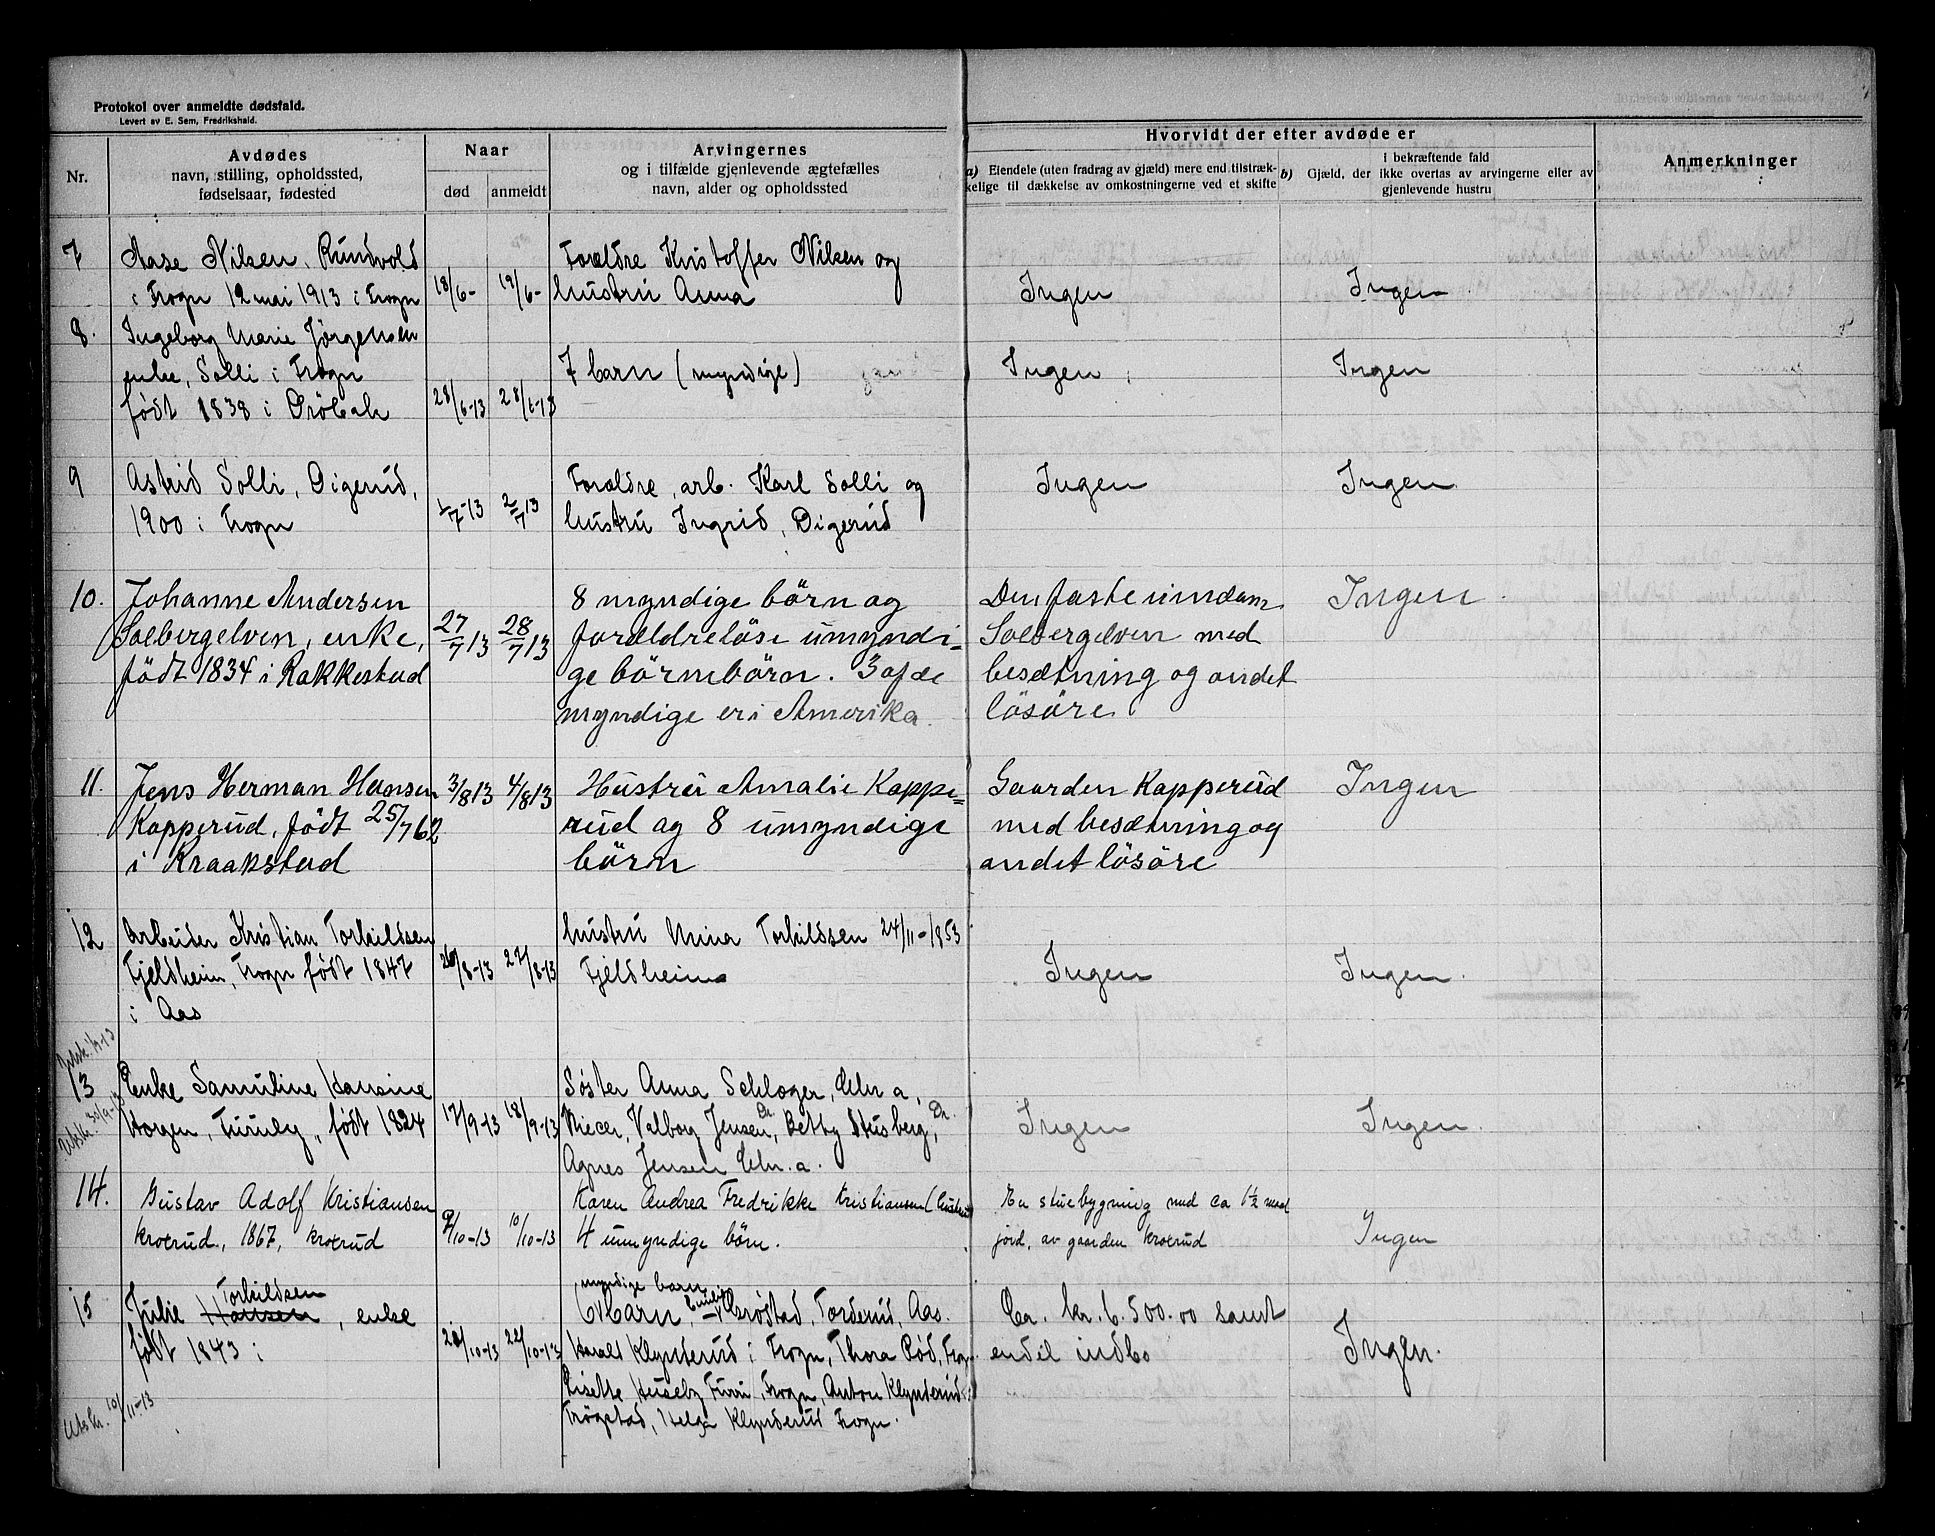 Protokol over anmeldte dødsfald.
Levert av E. Sem, Fredrikshald.
Nr.
Avdødes
navn, stilling, opholdssted,
fødselsaar, fødested
Naar
død
anmeldt
Arvingernes
og i tilfælde gjenlevende ægtefælles
navn, alder og opholdssted
Hvorvidt der efter avdøde er
a) Eiendele (uten fradrag av gjæld) mere end tilstræk-
kelige til dækkelse av omkostningerne ved et skifte
b) Gjæld, der i bekræftende fald
ikke overtas av arvingerne eller av
gjenlevende hustru
Anmerkninger
7
Aase Nilsen, Rundvold
i Frogn 12 mai 1913 i Frogn
18/6-
19/6-
Forældre Kristoffer Nilsen og
hustru Anna
Ingen
Ingen
8.
Ingeborg Marie Jörgensen
enke, Solli i Frogn
født 1838 i Dröbak
28/6-13
28/6-13
7 barn (myndige)
Ingen
Ingen
9
Astrid Solli, Digerud,
1900 i Frogn
1/7-13
2/7 13
Forældre, arb. Karl Solli og
hustru Ingrid, Digerud
Ingen
Ingen
10.
Johanne Andersen
Solbergelven, enke,
født 1834 i Rakkestad
27/7 13
28/7 13
8 myndige börn og
forældreløse umyndi-
ge börnebörn. 3 af de
myndige er i Amerika.
Den faste eiendom
Solbergelven med
besætning og andet
lösöre.
Ingen
11.
Jens Herman Hansen
Kapperud, født 25/7 62
i Kraakstad
3/8 13
4/8 13
Hustru Amalie Kappe-
rud og 8 umyndige
börn
Gaarden Kapperud
med besætning og
andet lösöre
Ingen
12
Arbeider Kristian Torkildsen
Fjeldheim, Frogn født 1847
i Aas
26/8-13
27/8-13
hustru Mina Torkildsen 24/11-1853
Fjeldheim
Ingen
Ingen.
13
Enke Samuline Hansine
Horgen, født 1824
Utskr. 30/9-13
17/9-13
18/9-13
Søster Anna Schloger,
Niecer, Valborg Jensen, Dr. Betty Stusberg, Dr.
Agnes Jensen
Ingen
Ingen.
14.
Gustav Adolf Kristiansen
Krokrud, 1867, Krokrud
9/10-13
10/10-13
Karen Andrea Fredrikke Kristiansen (hustru
4 umyndige börn.
En stuebygning med ca 1½ maal
jord, av gaarden Krokrud
Ingen
15
Julie Hansen Torkildsen, enke
født 1843 i
Utskr. 10/11-13
20/10-13
22/10-13
myndige barn
6 barn, Emilie Torderud, Aas.
Harald Klynderud i Frogn, Thora Rød, Frogn
Lisette Huseby Frogn, Anton Klynderud
Trögstad, Helga Klynderud Frogn.
Ca. kr. 6.500.00 samt
endel indbo
Ingen.